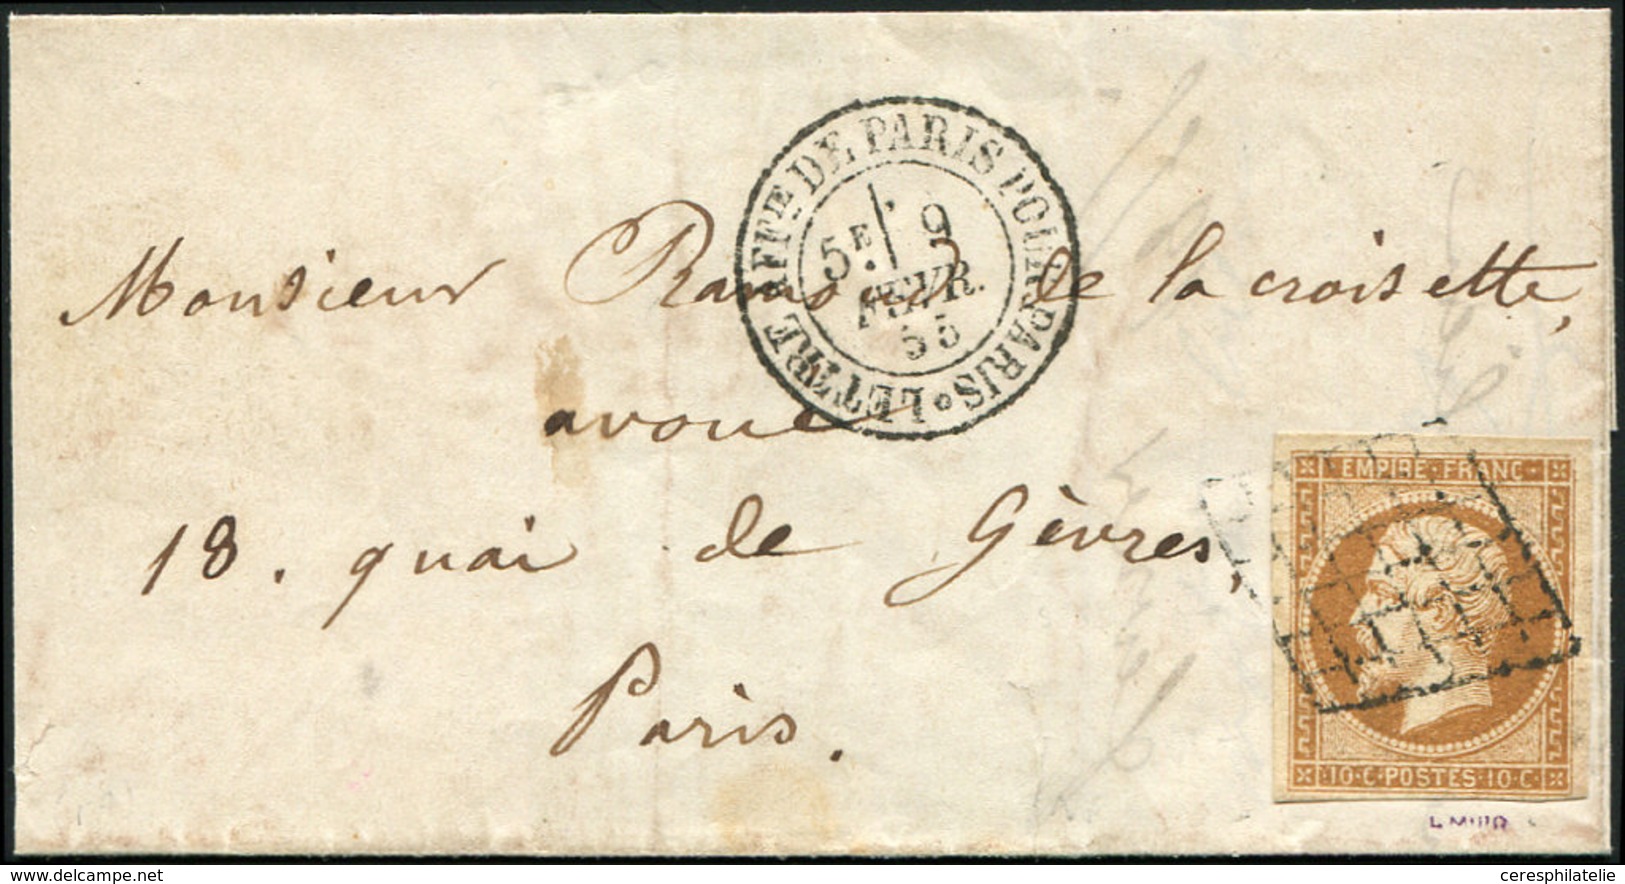 LETTRE AFFIE DE PARIS POUR PARIS
5E 9
FEVR.
55
Monsieur Ramond de la croisette,
avoué
18. quai de Gèvres,
Paris.
EMPIRE·FRANC-
·10·C·POSTES·10·C·
delcampe.net
ceresphilatelie